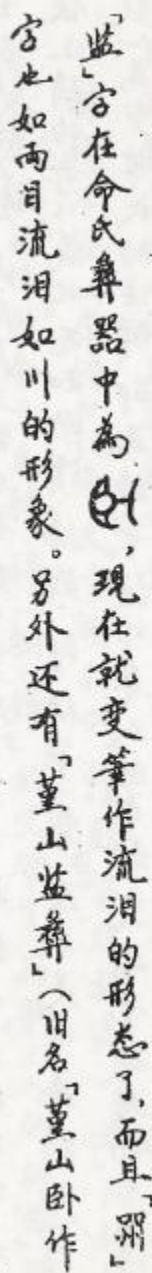 「监」字在命氏彝器中為，現在就变筆作流泪的形态了，而且「
字也如两目流泪如川的形象。另外还有「堇山监彝」（旧名「堇山卧作